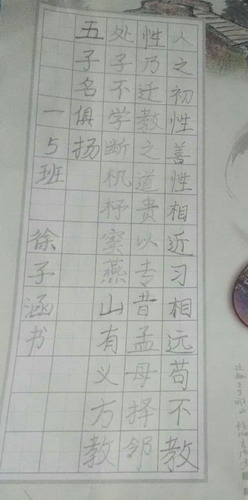 人之初性善性相近习相远苟不教
性乃迁教之道贵以专昔孟母择邻
处子不学断机杼窦燕山有义方教
五子名俱扬
一5班 徐子涵书